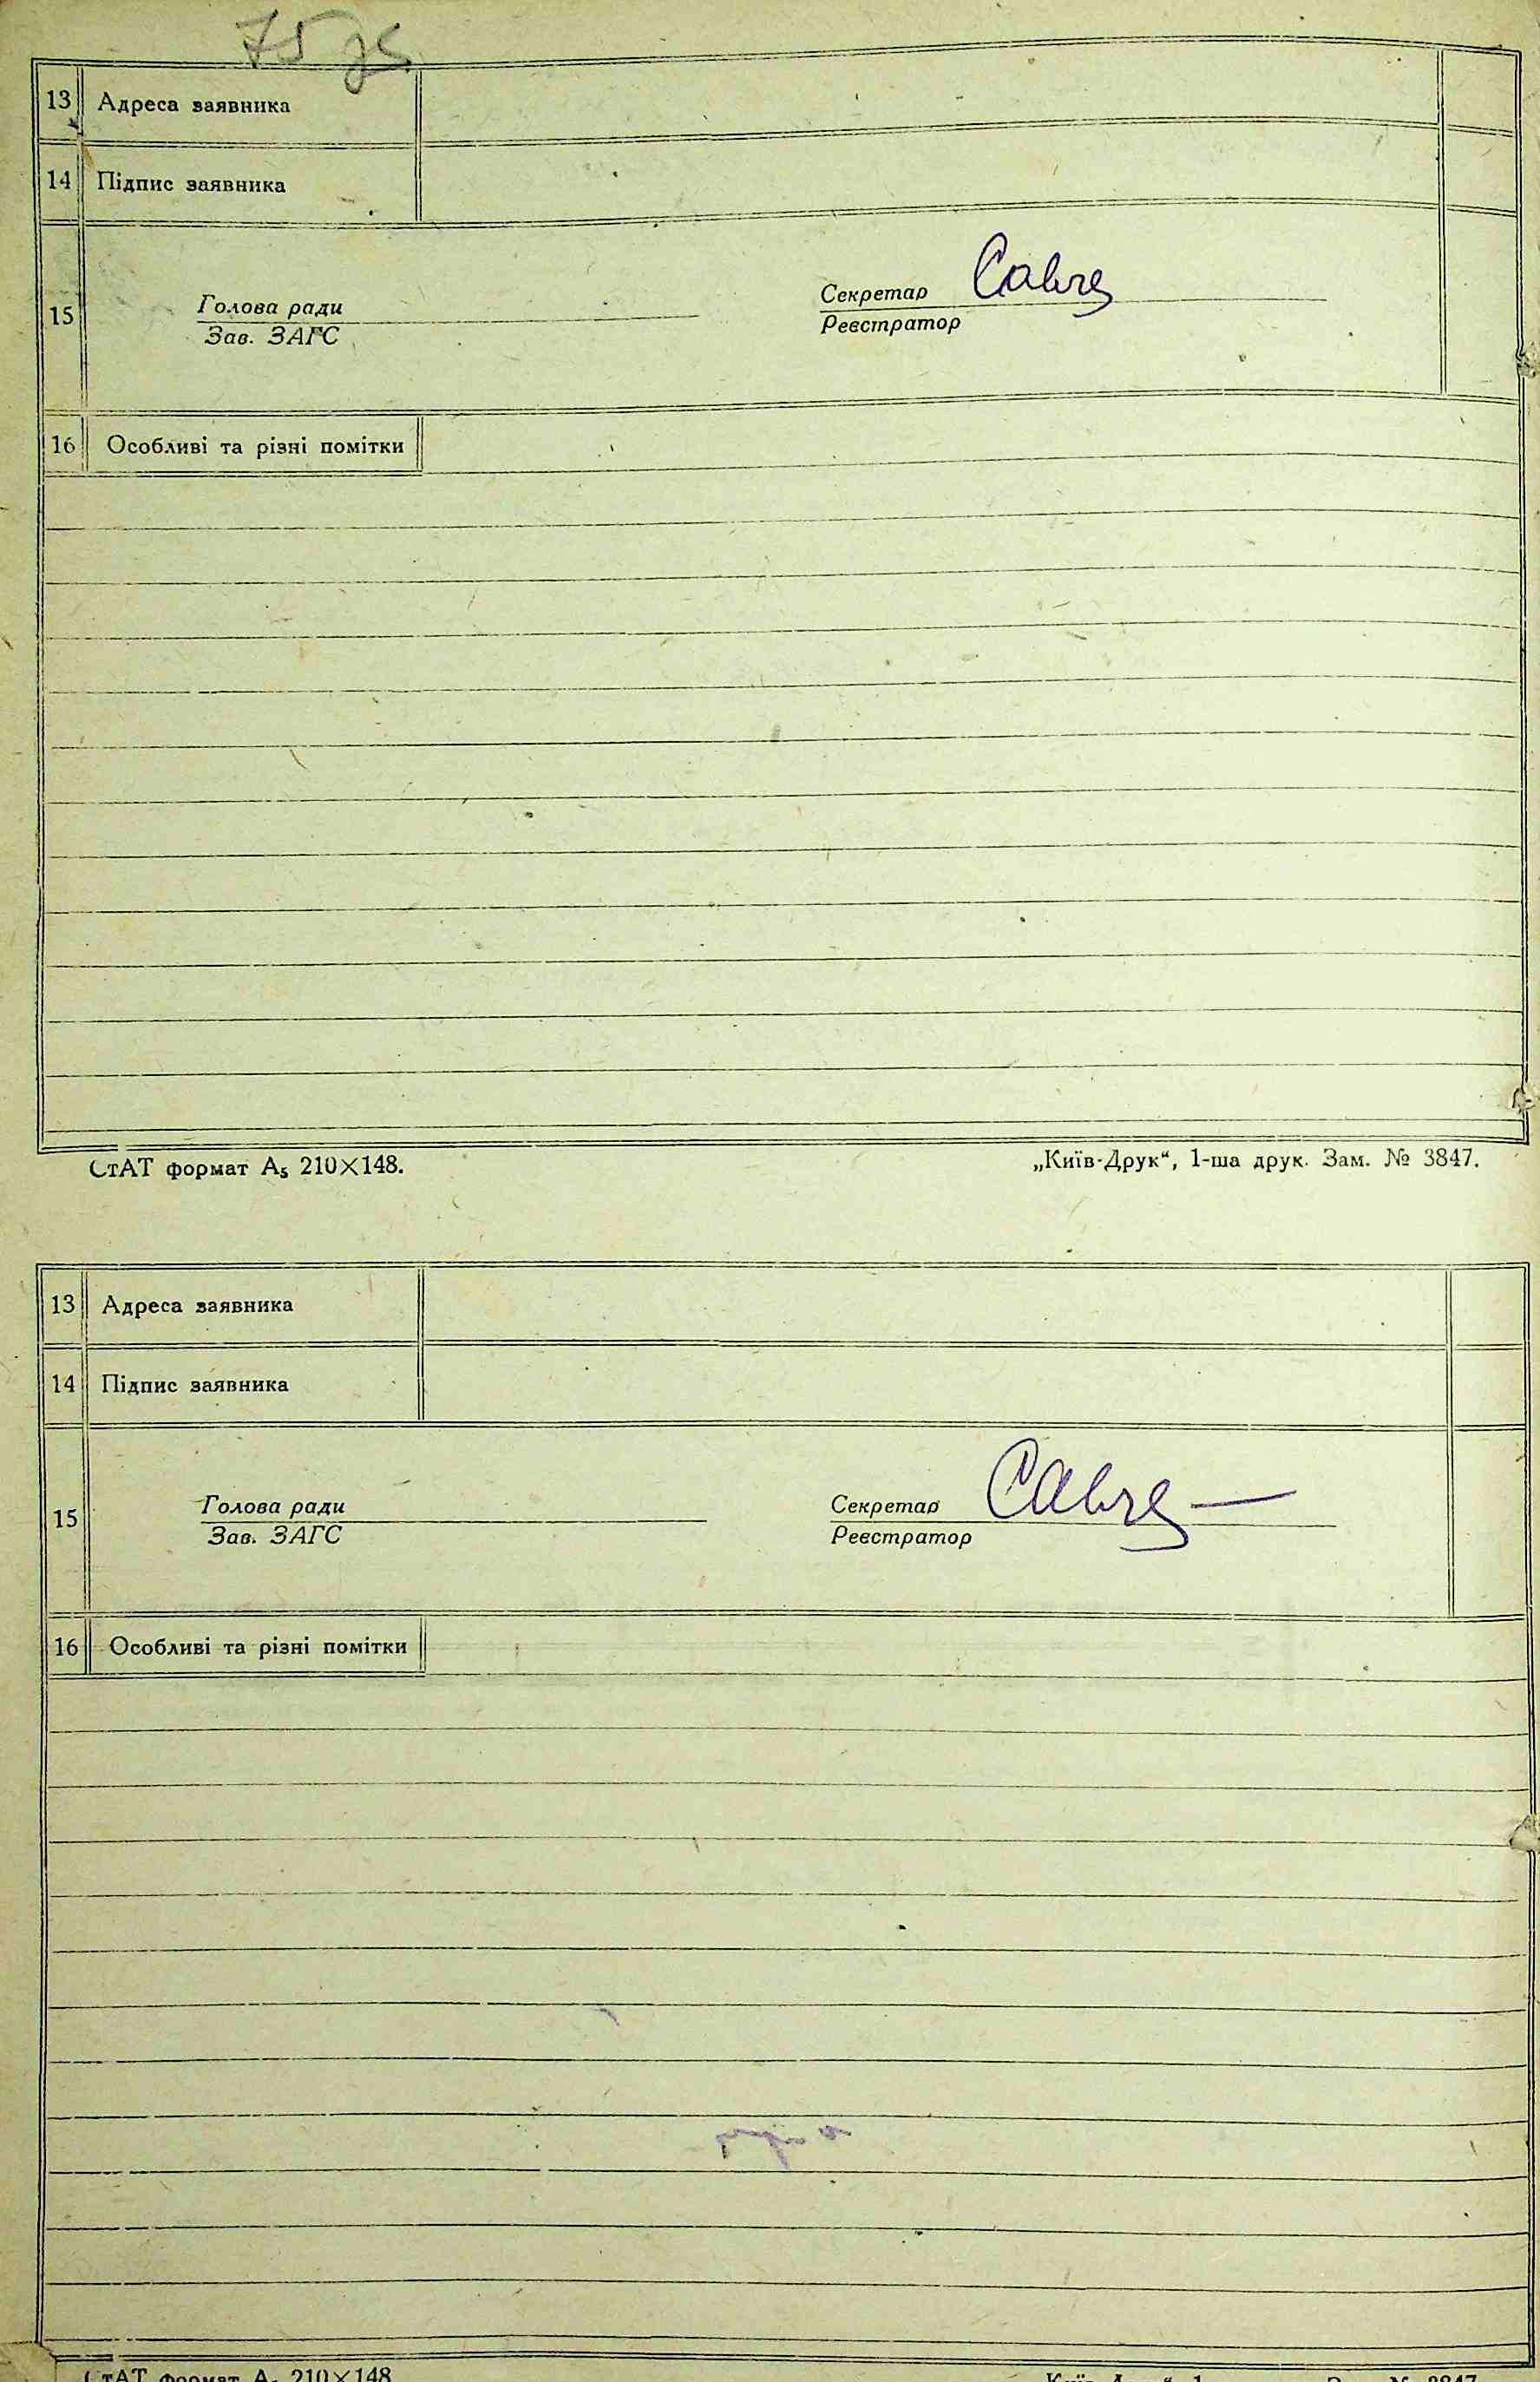 75 зв
13 Адреса заявника
14 Підпис заявника
15 Голова ради Секретар
Зав. ЗАГС Реєстратор
16 Особливі та різні помітки
СтАТ формат А₅ 210×148. „Київ-Друк“, 1-ша друк. Зам. № 3847.
13 Адреса заявника
14 Підпис заявника
15 Голова ради Секретар
Зав. ЗАГС Реєстратор
16 Особливі та різні помітки
СтАТ формат А₅ 210×148